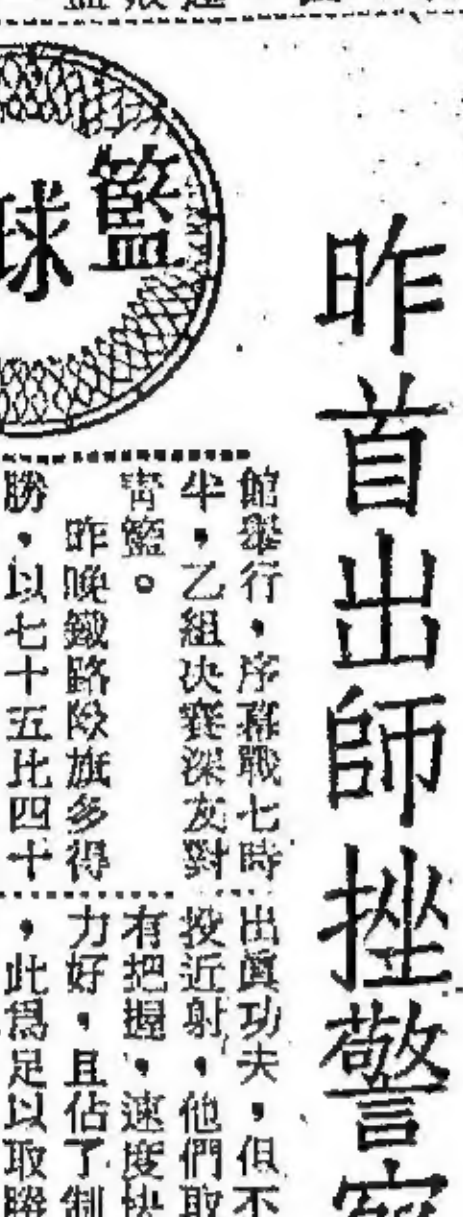 昨首出師挫警察
籃球
館舉行，序幕戰七時
半，乙組决賽深友對
青籃。
昨晚鐵路隊旗多得
勝，以七十五比四十
出眞功夫，但不
投近射，他們取
有把握，速度快
力好，且佔了制
，此爲足以取勝